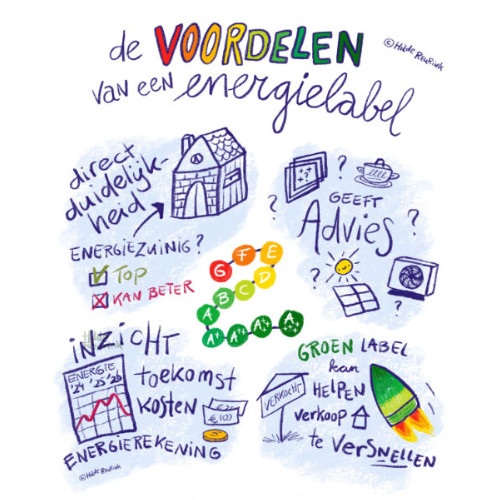 de VOORDELEN
©Hilde Reurink
van een energielabel
direct
duidelijk-
heid
ENERGIEZUINIG?
TOP
KAN BETER
? ?
GEEFT
Advies
?
?
?
?
G F E
A B C D
A+ A++ A+++ A
INZICHT
ENERGIE
'24 '25 '26
toekomst
KOSTEN
€100
ENERGIEREKENING
©Hilde Reurink
GROEN LABEL
kan
HELPEN
VERKOCHT
verkoop
te VERSNELLEN